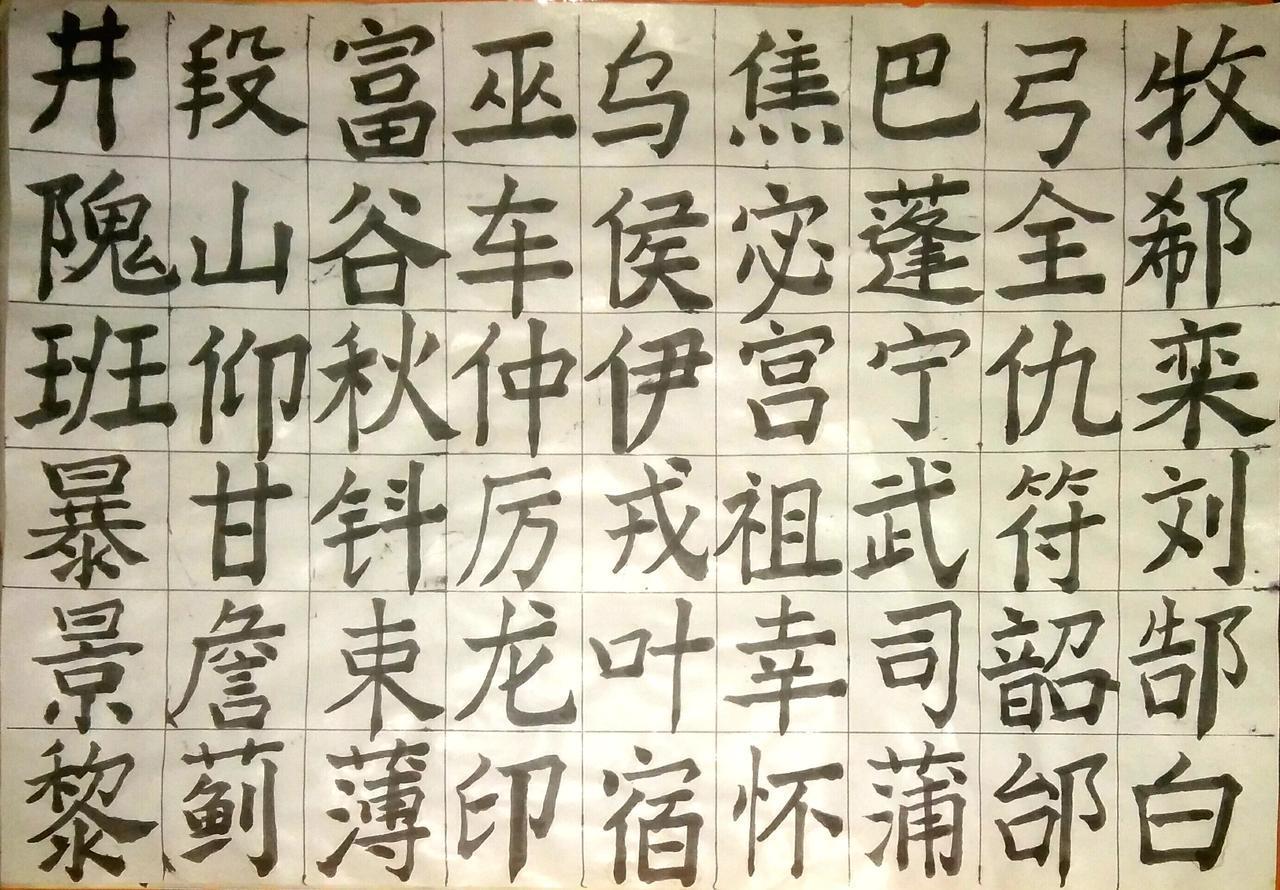 井段富巫乌焦巴弓牧
隗山谷车侯宓蓬全郗
班仰秋仲伊宫宁仇栾
暴甘钭厉戎祖武符刘
景詹束龙叶幸司韶郜
黎蓟薄印宿怀蒲邰白